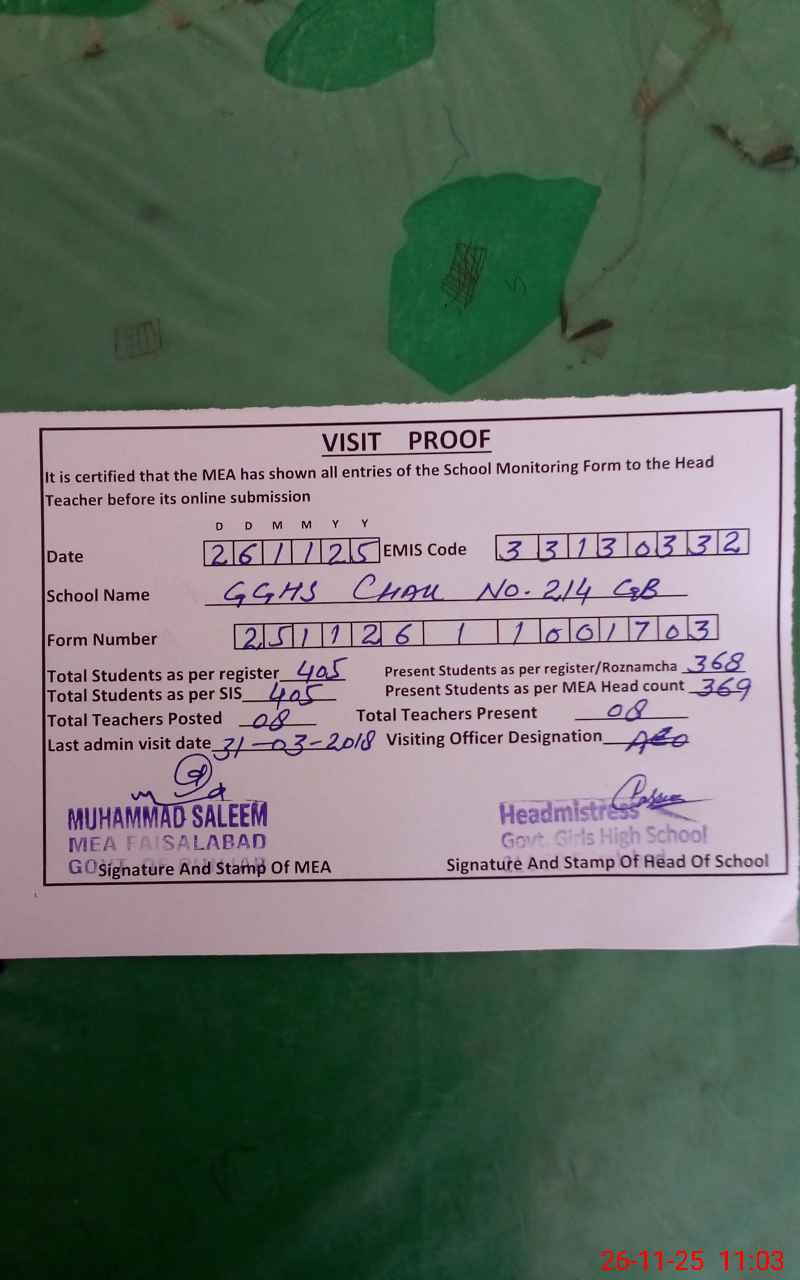 VISIT PROOF
It is certified that the MEA has shown all entries of the School Monitoring Form to the Head
Teacher before its online submission
D D M M Y Y
Date 261125 EMIS Code 33130332
School Name GGHS CHAK NO. 214 GB
Form Number 251126 1 1001703
Total Students as per register 405 Present Students as per register/Roznamcha 368
Total Students as per SIS 405 Present Students as per MEA Head count 369
Total Teachers Posted 08 Total Teachers Present 08
Last admin visit date 31-03-2018 Visiting Officer Designation AEO
MUHAMMAD SALEEM Headmistress
MEA FAISALABAD Govt. Girls High School
Signature And Stamp Of MEA Signature And Stamp Of Head Of School
26-11-25 11:03